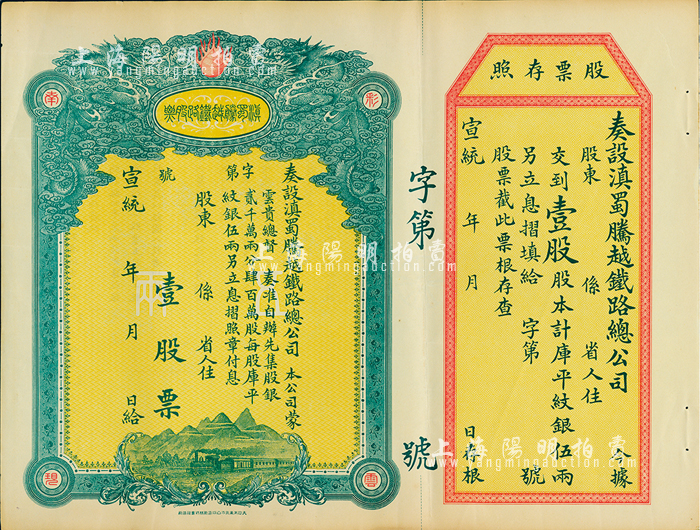 股票存照
奏設滇蜀騰越鐵路總公司 今據
股東 係 省人住
交到壹股股本計庫平紋銀伍兩
另立息摺填給 字第 號
股票截此票根存查
宣統 年 月 日存根
字第 號
滇蜀騰越鐵路股票
南
彩
碧
雲
奏設滇蜀騰越鐵路總公司 本公司蒙
雲貴總督 奏准自辦先集股銀
貳千萬兩分肆百萬股每股庫平
紋銀伍兩另立息摺照章付息
字第 號
股東 係 省人住
壹股票
宣統 年 月 日給
伍
兩
上海陽明拍賣
www.yangmingauction.com
上海陽明拍賣
www.yangmingauction.com
上海陽明拍賣
www.yangmingauction.com